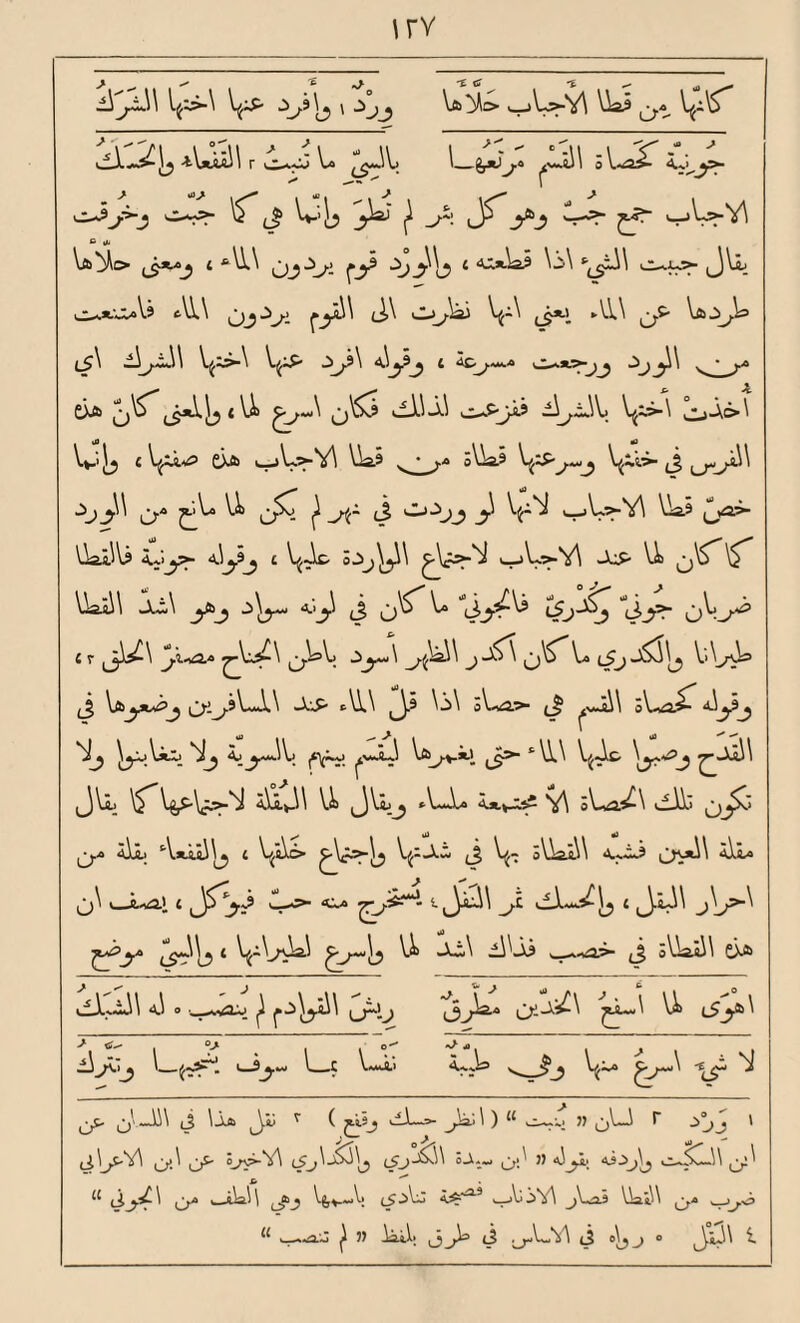 ١٢٧
كَأَنَّهَا مِنْ قَطَا الأَجْبَابِ حَلَّأَهَا وِرْدٌ ١ وَأَفْرَدَ عَنْهَا أُخْتَهَا الشَّرَكُ
جُونِيَّةٌ كَحَصَاةِ القَسْمِ مَرْتَعُهَا بِالسِّيِّ مَا تُنْبِتُ ٢ القَفْعَاءُ وَالحَسَكُ
الأجباب جمع جبّ وهو كل بئر لم تُطْوَ وإنّما هي كما جُبّت وجُرفت
يقال جببت الشيء إذا قطعته ، والورود قوم يردون الماء ، ومعنى حلّأها
طردها عن الماء ، يعني أنها نظرت إلى القوم يردون الماء فامتنعت
من الورود ورجعت مسرعة ، وقوله أفرد عنها أختها الشرك أي
أُخذت أختها بالشرك ففزعت لذلك فكان أسرع لها ، والمعنى كأنّ هذه
الفرس في خفّتها وسرعتها قطاة من قطا الأجباب هذه صفتها ، وإنّما
خصّ قطا الأجباب لأنها لو وردت في نهر لم يكن لها مانع من الورود
كما كان لها عند الأجباب لاجتماع الواردة عليها ، وقوله جونية فالقطا
ضربان جُونيّ وكُدْريّ فالجونيّ ما كان في لونه سواد وهو أشد القطا
طيرانا والكدري ما كان أكدر الظهر أسود باطن الجناح مصفرّ الحلق ٣ ،
وقوله كحصاة القسم هي حصاة إذا قلّ الماء عند المسافرين وضعوها في
القدح وصبّوا عليها الماء حتى يغمرها لقسم بينهم بالسويّة ولا يتغابنوا ولا
تكون تلك الحصاة إلا مجتمعة ملساء ويقال لها المقلة لاجتماعها كما يقال
مقلة العين فشبه القطاة بها في شدتها واجتماع خلقها ، والقفعاء بقلة من
أحرار البقل ، والحسك ثمر النفل ٤ يستخرج منه حبّ فيؤكل ، يصف أن
هذه القطاة في خصب فذاك أشدّ لها وأسرع لطيرانها ، والسيّ موضع
أَهْوَى لها أسفع الخدّين مُطَّرِقٌ ريشَ القوادم لم يُنصب ٥ له الشَّبَكُ
لا شيء أسرع منها وهي طيّبة نفسا بما سوف ينجيها وتَتَّرِكُ
١ وِرْدٌ ٢ لسان « ينبت » ( انظر حسك وقفع ) ٣ نقل هذا في اللسان عن
ابن السكيت وأردفه بقوله « ابن سيده الكدري والكداري الأخيرة عن ابن الأعرابي
ضرب من القطا قصار الأذناب فصيحة تنادي باسمها وهي ألطف من الجوني »
٤ النفل ٥ رواه في الأساس في طرق بلفظ « لم تنصب »